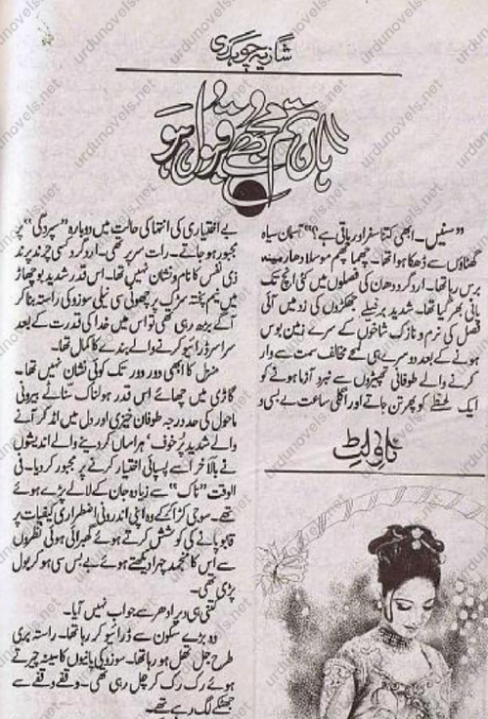 شازیہ چوہدری
ہاں تم مجھے قبول ہو
”سنیں۔ ابھی کتنا سفر اور باقی ہے؟“ آسمان سیاہ
گھٹاؤں سے ڈھکا ہوا تھا۔ چھما چھم موسلا دھار مینہ
برس رہا تھا۔ اردگرد دھان کی فصلوں میں کئی انچ تک
پانی بھر گیا تھا۔ شدید برفیلے جھکڑوں کی زد میں آئی
فصل کی نرم و نازک شاخوں کے سرے زمین بوس
ہونے کے بعد دوسرے ہی لمحے مخالف سمت سے وار
کرنے والے طوفانی تھپیڑوں سے نبرد آزما ہونے کو
ایک لحظے کو پھر تن جاتے اور اگلی ساعت بے بسی و
ناولٹ
بے اختیاری کی انتہا کی حالت میں دوبارہ ”سپردگی“ پر
مجبور ہو جاتے۔ رات سر پر تھی۔ اردگرد کسی چرند پرند
ذی نفس کا نام و نشان نہیں تھا۔ اس قدر شدید بوچھاڑ
میں نیم پختہ سڑک پر چھوٹی سی نیلی سوزوکی راستہ بنا کر
آگے بڑھ رہی تھی تو اس میں خدا کی قدرت کے بعد
سراسر ڈرائیو کرنے والے بندے کا کمال تھا۔
منزل کا ابھی دور دور تک کوئی نشان نہیں تھا۔
گاڑی میں چھائے اس قدر ہولناک سناٹے بیرونی
ماحول کی حد درجہ طوفان خیزی اور دل میں امڈ کر آنے
والے شدید پُر خوف‘ ہراساں کر دینے والے اندیشوں
نے بالآخر اسے پسپائی اختیار کرنے پر مجبور کر دیا۔ فی
الوقت ”ناک“ سے زیادہ جان کے لالے پڑے ہوئے
تھے۔ سو جی کڑا کر کے وہ اپنی اندرونی اضطراری کیفیات پر
قابو پانے کی کوشش کرتے ہوئے گھبرائی ہوئی نظروں
سے اس کا منجمد چہرا دیکھتے ہوئے بے بس سی ہو کر بول
پڑی تھی۔
کتنی ہی دیر ادھر سے جواب نہیں آیا۔
وہ بڑے سکون سے ڈرائیو کر رہا تھا۔ راستہ بری
طرح جل تھل ہو رہا تھا۔ سوزوکی پانیوں کا سینہ چیرتے
ہوئے رک رک کر چل رہی تھی۔ وقفے وقفے سے
جھٹکے لگ رہے تھے۔